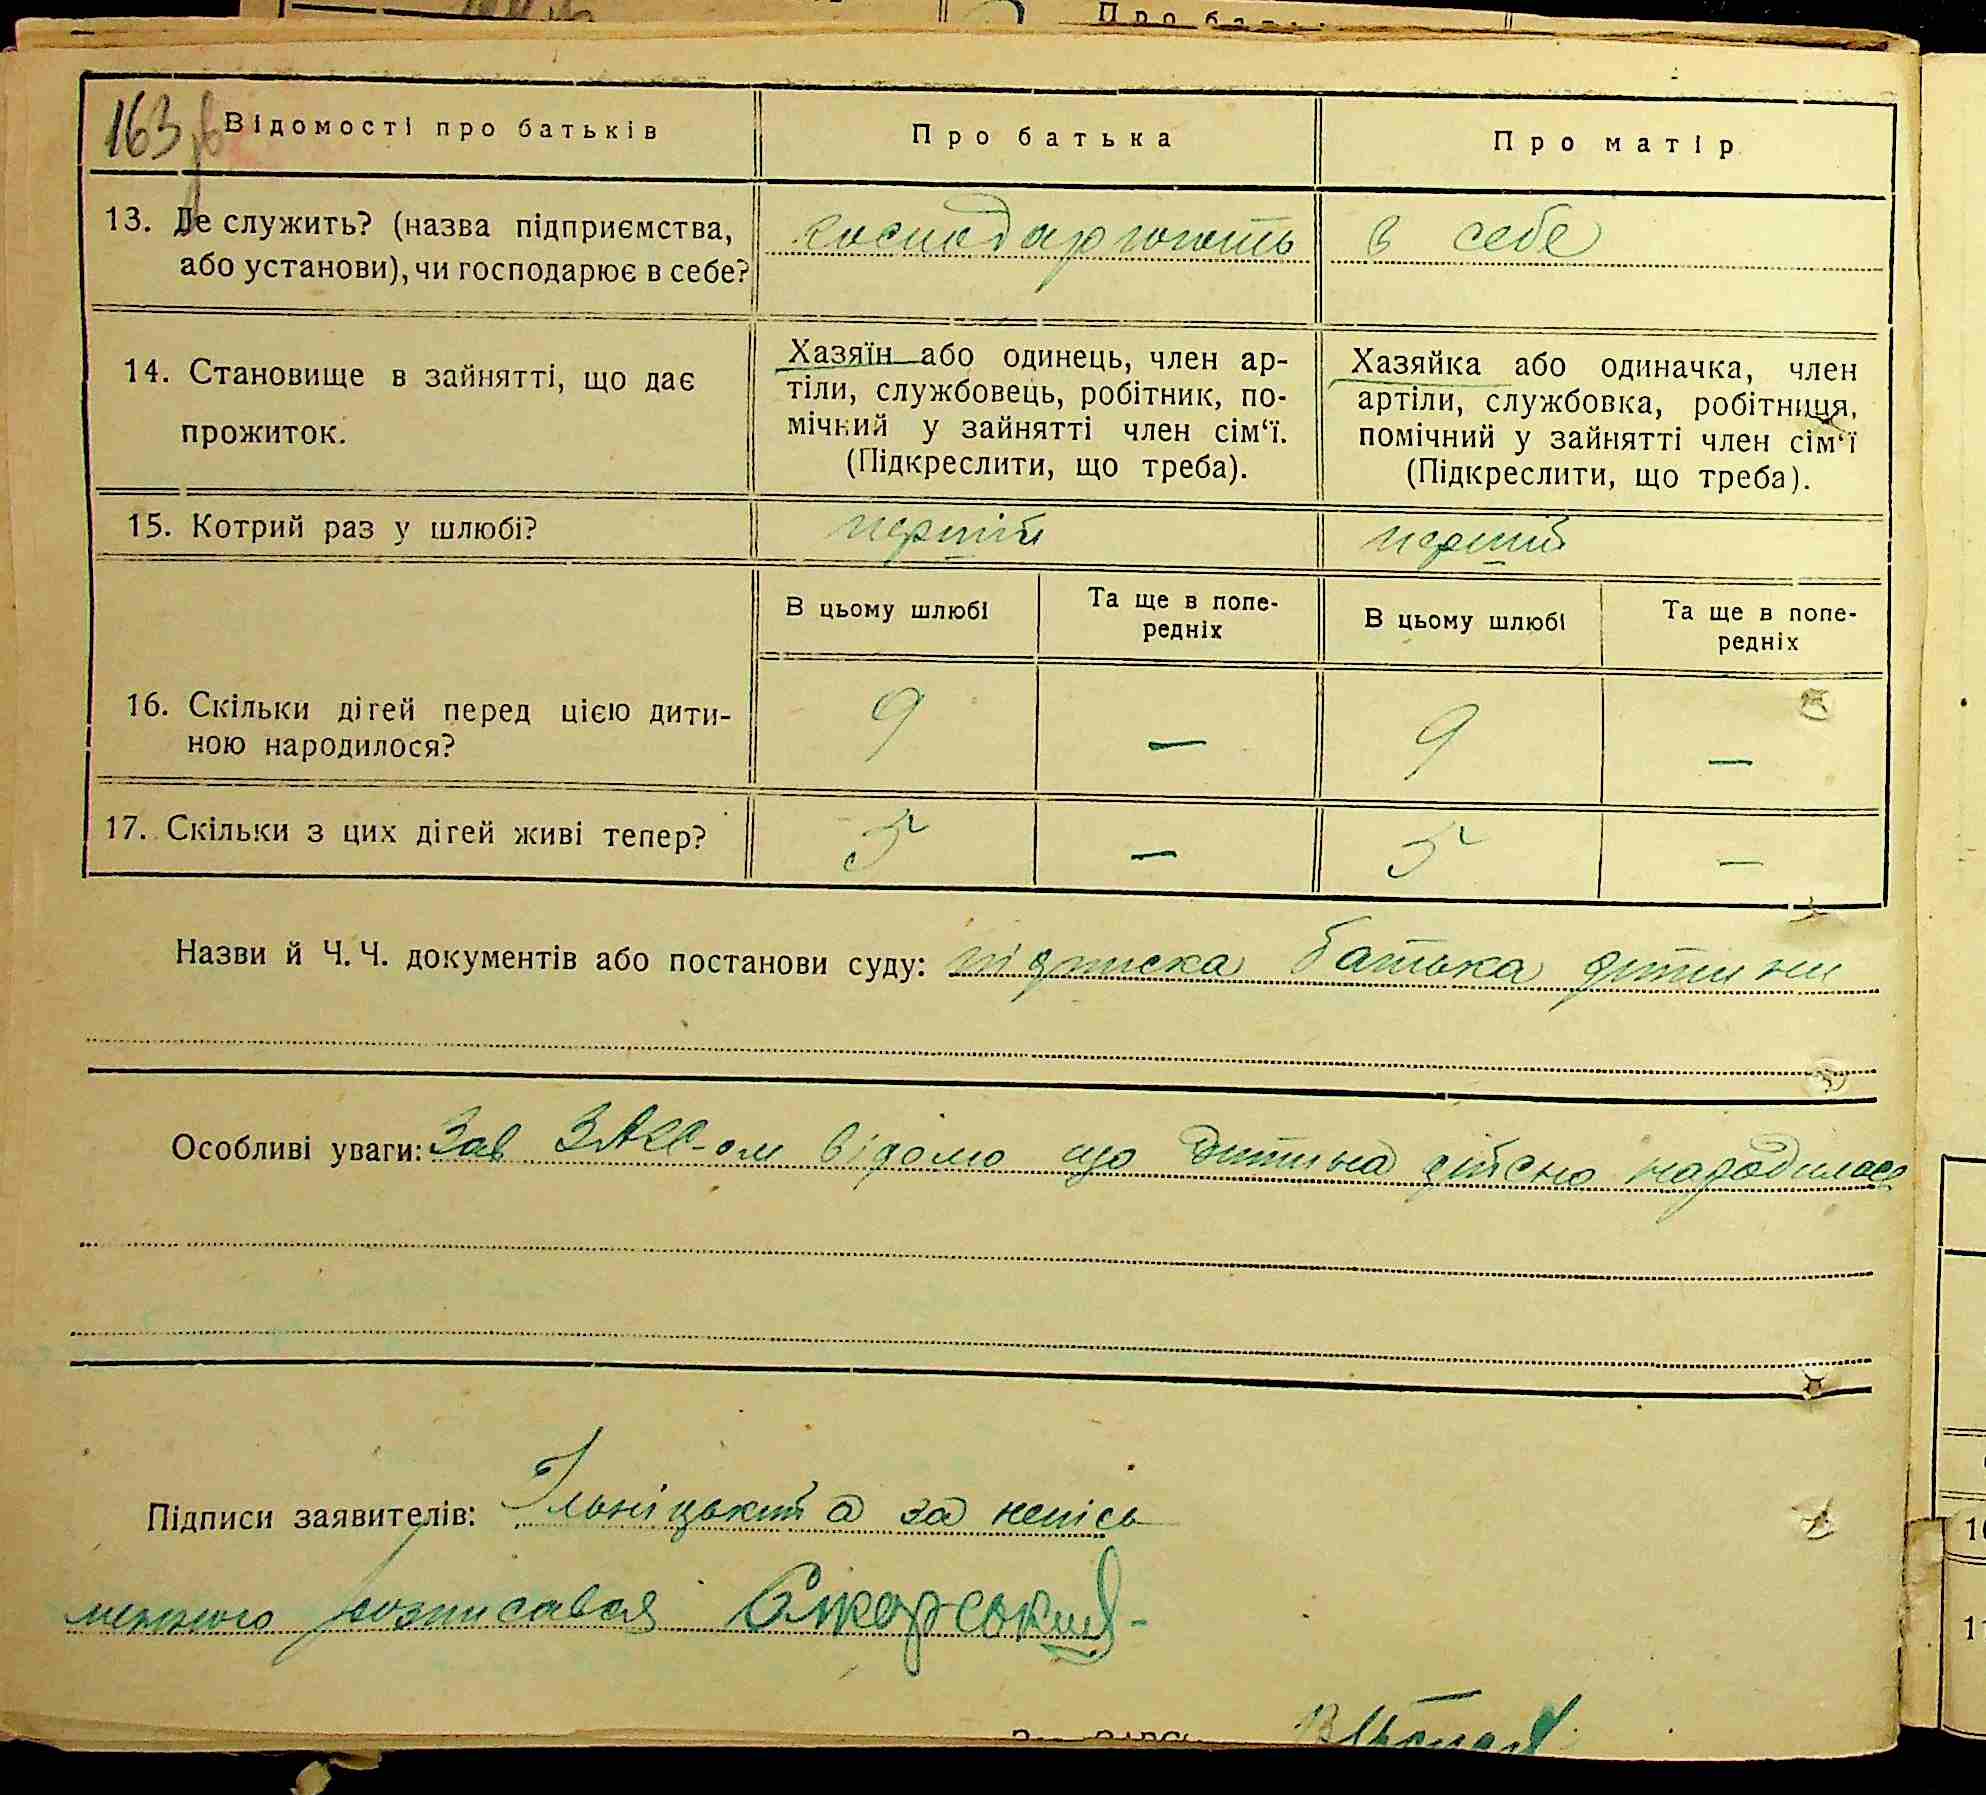 Про бать
163
Відомості про батьків
Про батька
Про матір
13. Де служить? (назва підприємства,
або установи), чи господарює в себе?
господарюють в себе
14. Становище в зайнятті, що дає
прожиток.
Хазяїн або одинець, член ар-
тіли, службовець, робітник, по-
мічний у зайнятті член сім‘ї.
(Підкреслити, що треба).
Хазяйка або одиначка, член
артіли, службовка, робітниця,
помічний у зайнятті член сім‘ї
(Підкреслити, що треба).
15. Котрий раз у шлюбі?
перший
перший
В цьому шлюбі
Та ще в попе-
редніх
В цьому шлюбі
Та ще в попе-
редніх
16. Скільки дітей перед цією дити-
ною народилося?
9 — 9 —
17. Скільки з цих дітей живі тепер?
5 — 5 —
Назви й Ч. Ч. документів або постанови суду: підписка батька дитини
Особливі уваги: Зав ЗАГС-ом відомо що дитина дійсно народилась
Підписи заявителів: Ільніцький а за непісь
менного розписався
10
11